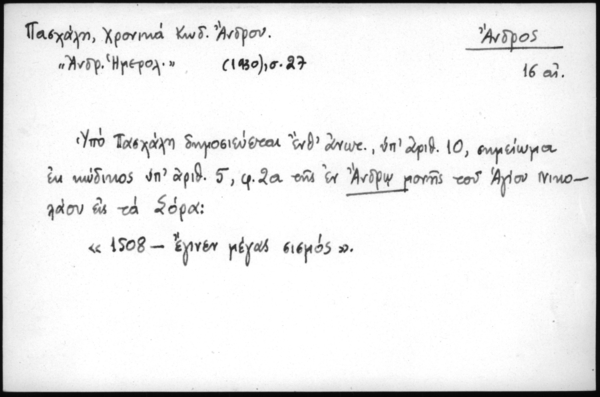 Πασχάλη, Χρονικά Κωδ. Ἄνδρου.
Ἄνδρος
«Ἀνδρ. Ἡμερολ.» (1930), σ. 27
16 αἰ.
Ὑπό Πασχάλη δημοσιεύεται ἔνθ' ἀνωτ., ὑπ' ἀριθ. 10, σημείωμα
ἐκ κώδικος ὑπ' ἀριθ. 5, φ. 2α τῆς ἐν Ἄνδρῳ μονῆς τοῦ Ἁγίου Νικο-
λάου εἰς τά Σόρα:
« 1508 — Ἔγινεν μέγας σισμός ».